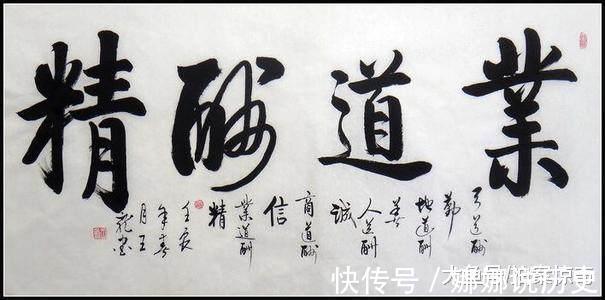 業道酬精
天道酬
勤
地道酬
善
人道酬
誠
商道酬
信
業道酬
精
壬辰
年春
月王
快传号 / 娜娜说历史
大鱼号